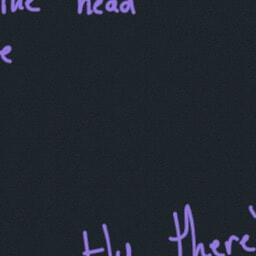 the head
e
tly there'